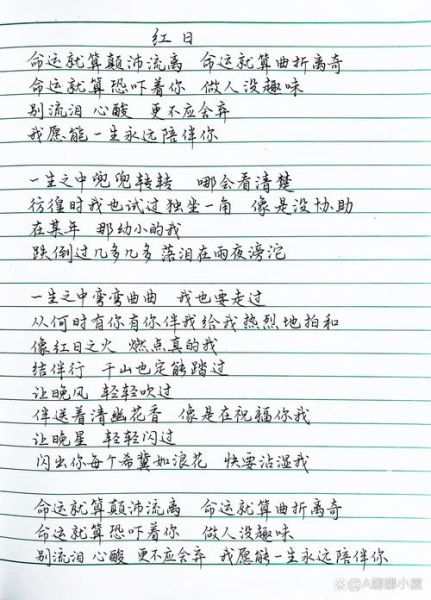 红日
命运就算颠沛流离 命运就算曲折离奇
命运就算恐吓着你 做人没趣味
别流泪 心酸 更不应舍弃
我愿能一生永远陪伴你
一生之中兜兜转转 哪会看清楚
彷徨时我也试过独坐一角 像是没协助
在某年 那幼小的我
跌倒过几多几多 落泪在雨夜滂沱
一生之中弯弯曲曲 我也要走过
从何时有你有你伴我给我热烈地拍和
像红日之火 燃点真的我
结伴行 千山也定能踏过
让晚风 轻轻吹过
伴送着清幽花香 像是在祝福你我
让晚星 轻轻闪过
闪出你每个希冀如浪花 快要沾湿我
命运就算颠沛流离 命运就算曲折离奇
命运就算恐吓着你 做人没趣味
别流泪 心酸 更不应舍弃 我愿能一生永远陪伴你
@A聊聊小屋